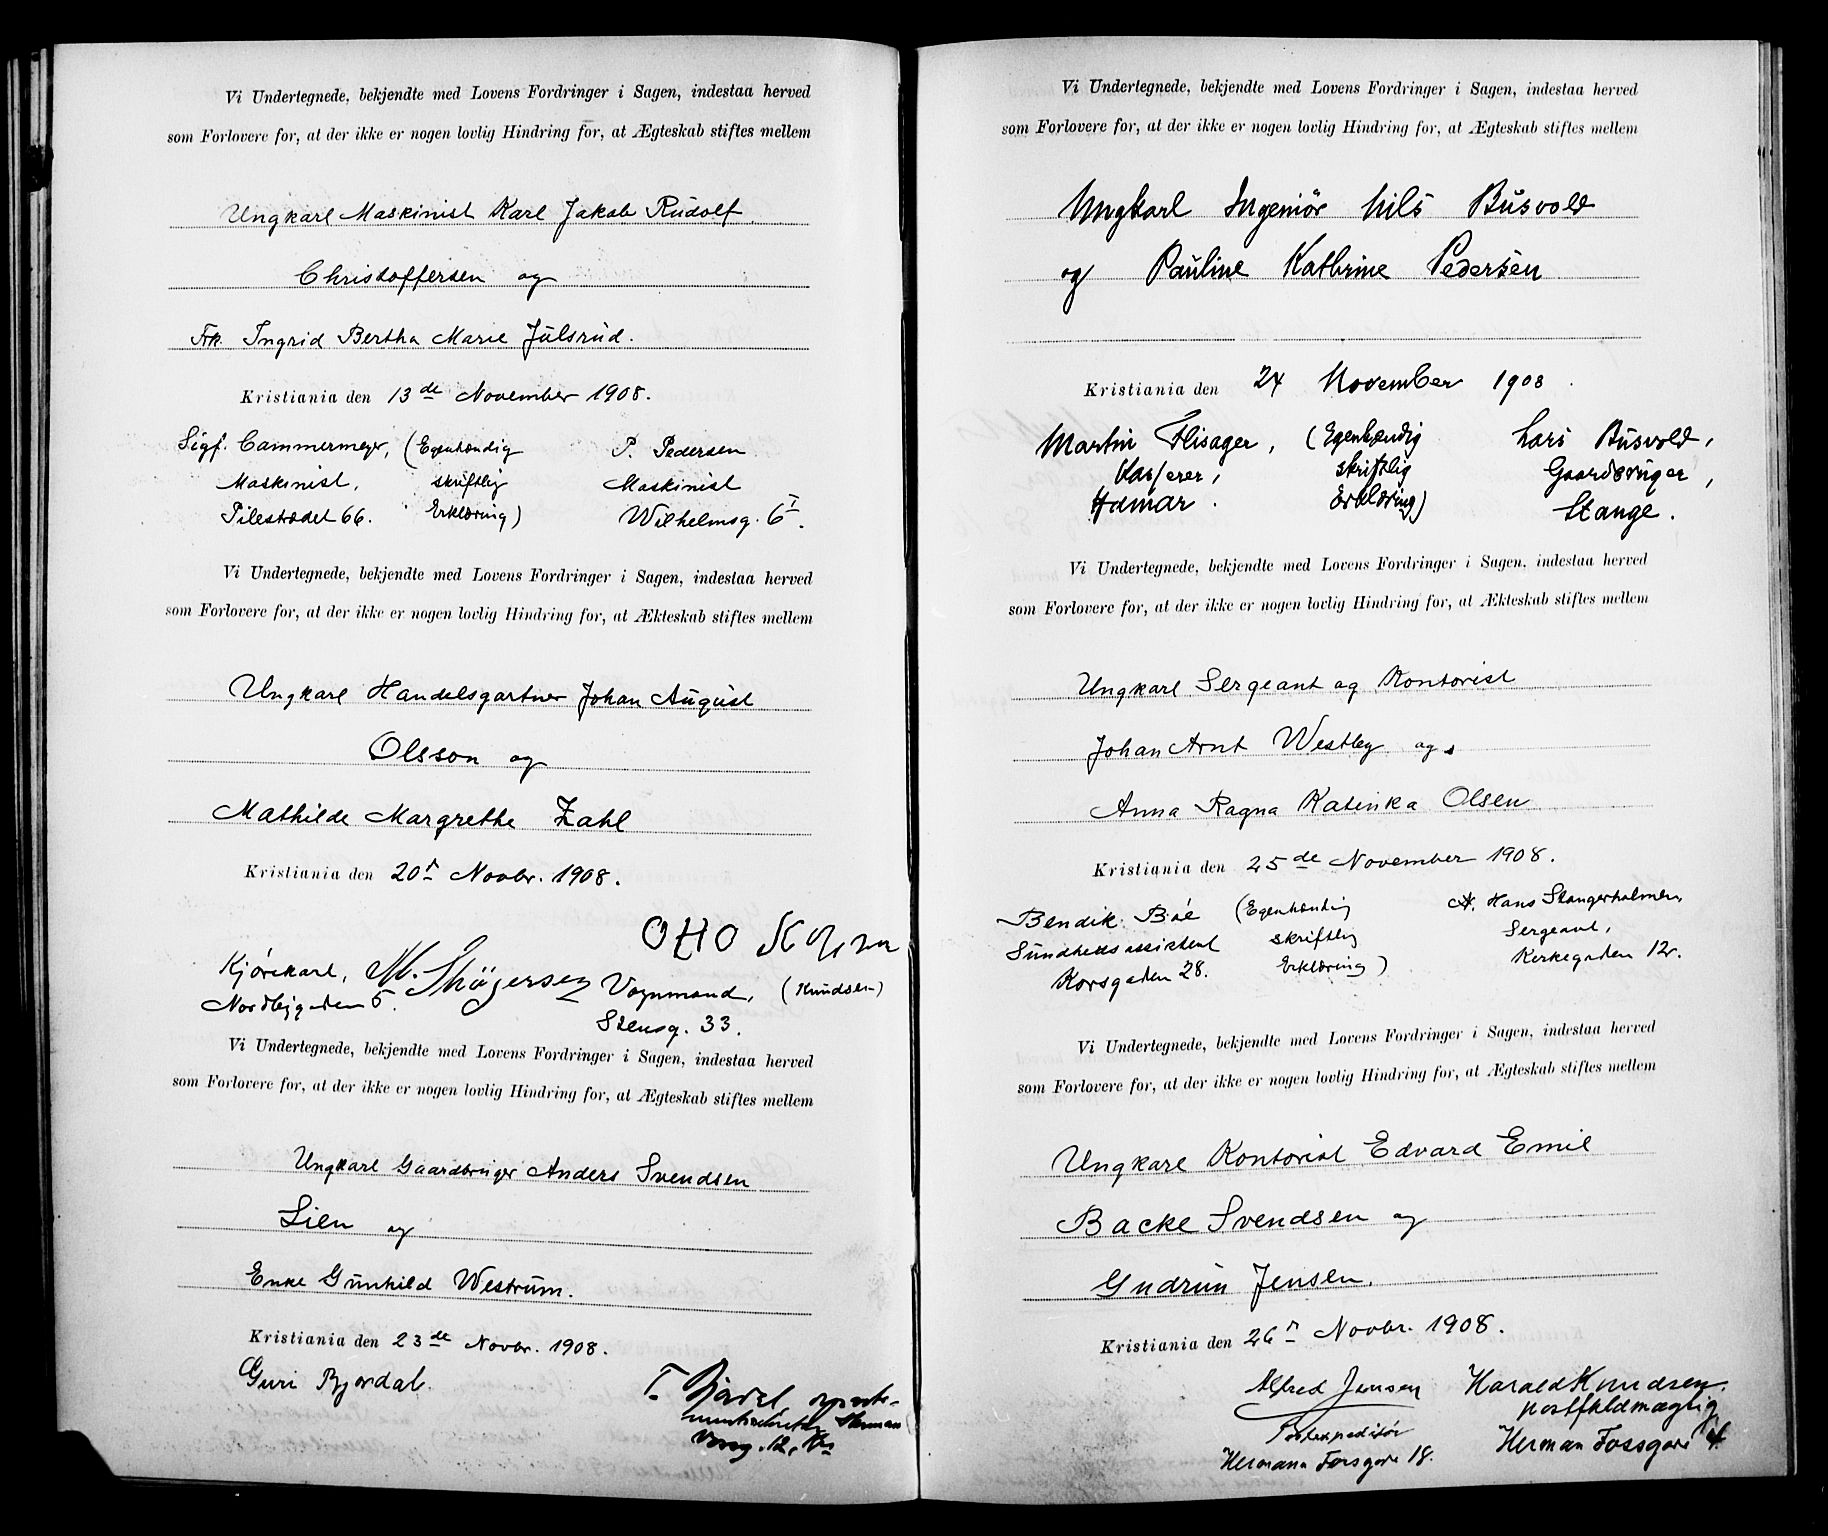 Vi Undertegnede, bekjendte med Lovens Fordringer i Sagen, indestaa herved
som Forlovere for, at der ikke er nogen lovlig Hindring for, at Ægteskab stiftes mellem
Ungkarl Maskinist Karl Jakob Rudolf
Christoffersen og
Frk. Ingrid Bertha Marie Julsrud.
Kristiania den 13de November 1908.
Sigf. Cammermeyer, (Egenhændig P. Pedersen
Maskinist, skriftlig Maskinist
Pilestrædet 66. Erklæring) Wilhelmsg. 6 I.
Vi Undertegnede, bekjendte med Lovens Fordringer i Sagen, indestaa herved
som Forlovere for, at der ikke er nogen lovlig Hindring for, at Ækteskab stiftes mellem
Ungkarl Handelsgartner Johan August
Olsson og
Mathilde Margrethe Zahl
Kristiania den 20d Novbr. 1908.
Otto
Kjørekarl, M. Vognmand, (Knudsen)
Nordbygaden 5. Stensg. 33.
Vi Undertegnede, bekjendte med Lovens Fordringer i Sagen, indestaa herved
som Forlovere for, at der ikke er nogen lovlig Hindring for, at Ægteskab stiftes mellem
Ungkarl Gaardbruger Anders Svendsen
Lien og
Enke Gunhild Westrum.
Kristiania den 23de Novbr. 1908.
Guri Bjordal. T.
12,
Vi Undertegnede, bekjendte med Lovens Fordringer i Sagen, indestaa herved
som Forlovere for, at der ikke er nogen lovlig Hindring for, at Ægteskab stiftes mellem
Ungkarl Ingeniør Nils Busvold
og Pauline Kathrine Pedersen
Kristiania den 24 November 1908.
Martin Flisager, (Egenhændig Lars Busvold,
skriftlig Gaardbruger,
Hamar. Erklæring) Stange.
Vi Undertegnede, bekjendte med Lovens Fordringer i Sagen, indestaa herved
som Forlovere for, at der ikke er nogen lovlig Hindring for, at Ækteskab stiftes mellem
Ungkarl Sergeant og Kontorist
Johan Arnt Westby og
Anna Ragna Katinka Olsen
Kristiania den 25de November 1908.
Bendik Bøe (Egenhændig Hans Stangerholmen,
Sundhetsassistent skriftlig Sergeant,
Korsgaden 28. Erklæring) Kirkegaden 12.
Vi Undertegnede, bekjendte med Lovens Fordringer i Sagen, indestaa herved
som Forlovere for, at der ikke er nogen lovlig Hindring for, at Ægteskab stiftes mellem
Ungkarl Kontorist Edvard Emil
Backe Svendsen og
Gudrun Jensen.
Kristiania den 26d Novbr. 1908.
Alfred Jensen Harald Knudsen.
Postexpeditør postfuldmægtig
Hermann Fossgade 18. Herman Fossgade 4.